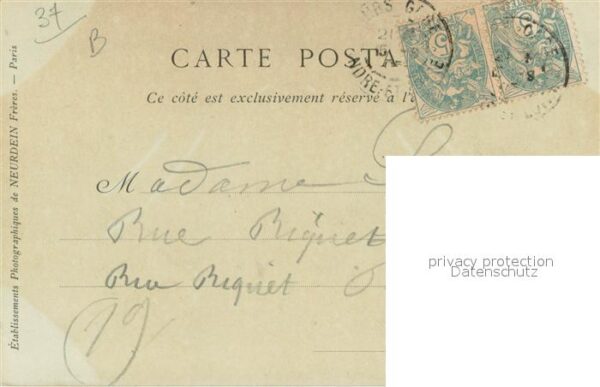 37
B
CARTE POSTA
Ce côté est exclusivement réservé à l'a
Madame
Rue Riquet
Rue Riquet
19
Établissements Photographiques de NEURDEIN Frères. — Paris
5
5
privacy protection
Datenschutz